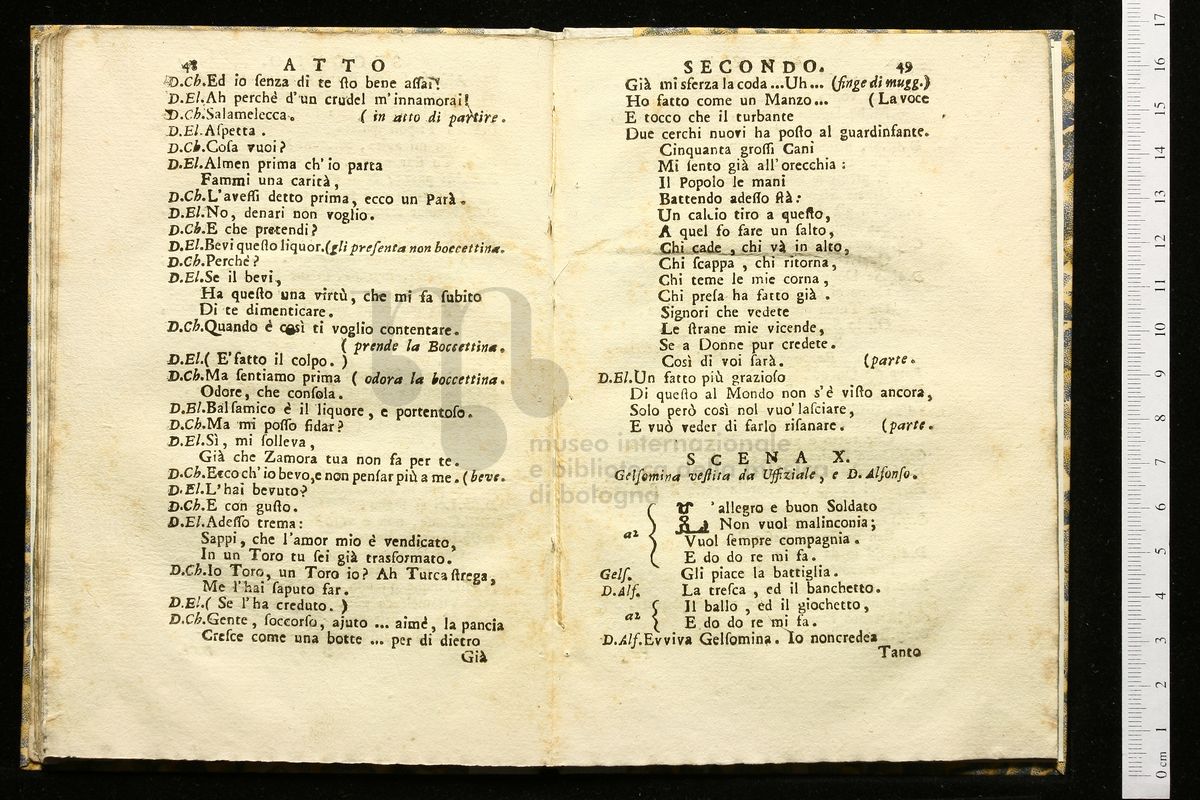 48 ATTO
D.Ch.Ed io ſenza di te ſto bene aſſai!
D.El.Ah perchè d'un crudel m'innamorai!
D.Ch.Salamelecca. ( in atto di partire.
D.El.Aſpetta.
D.Ch.Coſa vuoi?
D.El.Almen prima ch'io parta
Fammi una carità,
D.Ch.L'aveſſi detto prima, ecco un Parà.
D.El.No, denari non voglio.
D.Ch.E che pretendi?
D.El.Bevi queſto liquor.(gli preſenta non boccettina.
D.Ch.Perchè?
D.El.Se il bevi,
Ha queſto una virtù, che mi fa ſubito
Di te dimenticare.
D.Ch.Quando è così ti voglio contentare.
( prende la Boccettina.
D.El.( E' fatto il colpo. )
D.Ch.Ma ſentiamo prima ( odora la boccettina.
Odore, che conſola.
D.El.Balſamico è il liquore, e portentoſo.
D.Ch.Ma mi poſſo fidar?
D.El.Sì, mi ſolleva,
Già che Zamora tua non fa per te.
D.Ch.Ecco ch'io bevo, e non penſar più a me. (beve.
D.El.L'hai bevuto?
D.Ch.E con guſto.
D.El.Adeſſo trema:
Sappi, che l'amor mio è vendicato,
In un Toro tu ſei già trasformato.
D.Ch.Io Toro, un Toro io? Ah Turca ſtrega,
Me l'hai ſaputo far.
D.El.( Se l'ha creduto. )
D.Ch.Gente, ſoccorſo, ajuto ... aimè, la pancia
Creſce come una botte ... per di dietro
Già
SECONDO. 49
Già mi sferza la coda ... Uh ... (finge di mugg.)
Ho fatto come un Manzo ... ( La voce
E tocco che il turbante
Due cerchi nuovi ha poſto al guardinfante.
Cinquanta groſſi Cani
Mi ſento già all'orecchia :
Il Popolo le mani
Battendo adeſſo ſtà:
Un calcio tiro a queſto,
A quel ſo fare un ſalto,
Chi cade, chi và in alto,
Chi ſcappa, chi ritorna,
Chi teme le mie corna,
Chi preſa ha fatto già.
Signori che vedete
Le ſtrane mie vicende,
Se a Donne pur credete.
Così di voi ſarà. (parte.
D.El.Un fatto più grazioſo
Di queſto al Mondo non s'è viſto ancora,
Solo però così nol vuo' laſciare,
E vuò veder di farlo riſanare. (parte.
SCENA X.
Gelſomina veſtita da Uffiziale, e D. Alfonſo.
a2 L'allegro e buon Soldato
Non vuol malinconia;
Vuol ſempre compagnia.
E do do re mi fa.
Gelſ. Gli piace la battiglia.
D.Alf. La treſca, ed il banchetto.
a2 Il ballo, ed il giochetto,
E do do re mi fa.
D.Alf.Evviva Gelſomina. Io noncredea
Tanto
museo internazionale
e biblioteca della musica
di bologna
0 cm 1 2 3 4 5 6 7 8 9 10 11 12 13 14 15 16 17